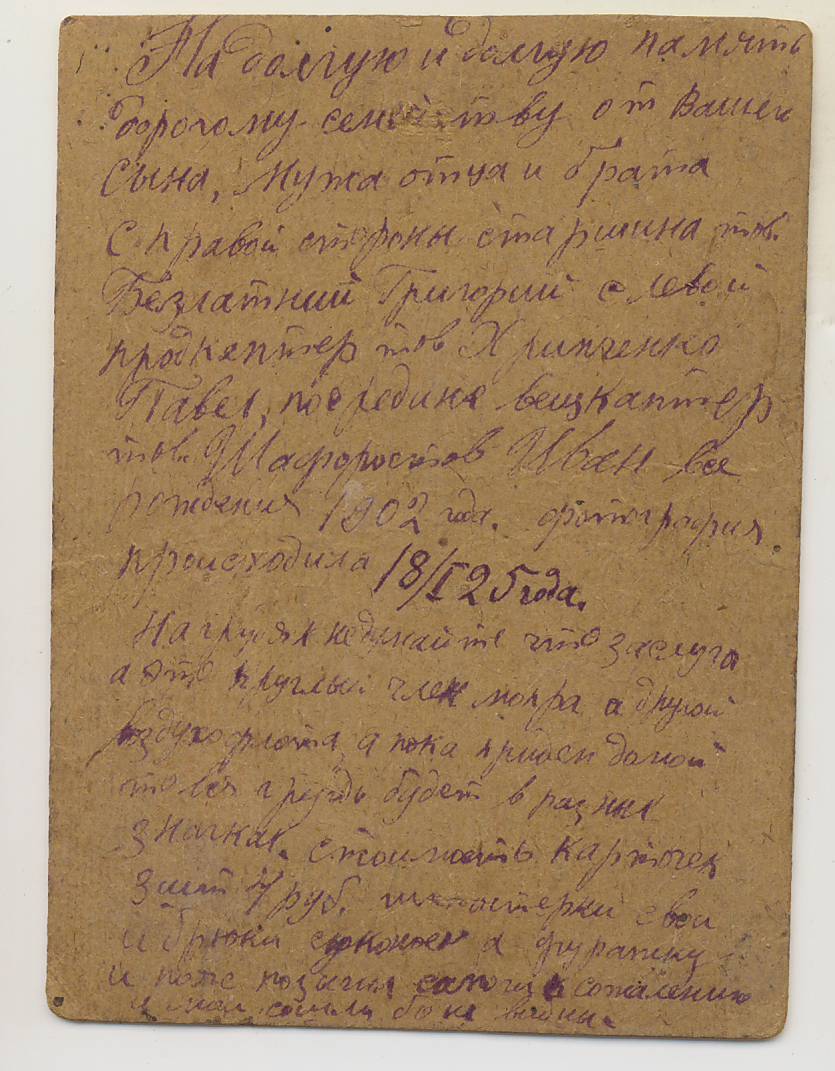 На долгую и долгую память
дорогому семейству от Вашего
сына, мужа отца и брата
с правой стороны старшина тов.
Безлатний Григорий с левой
продкептер тов Хрипченко
Павел, посредине вещкаптер
тов. Шафоростов Иван все
рождения 1902 года. фотография
происходила 18/I 25 года.
На грудях недумайте что заслуга
а это круглый член мопра а другой
воздухофлота, а пока приден домой
то вся грудь будет в разных
значках. стоимость карточек
3 шт 7 руб. свои
и брюки а фуражку
и пояс сапоги к сожалению
и мои бы не видны.